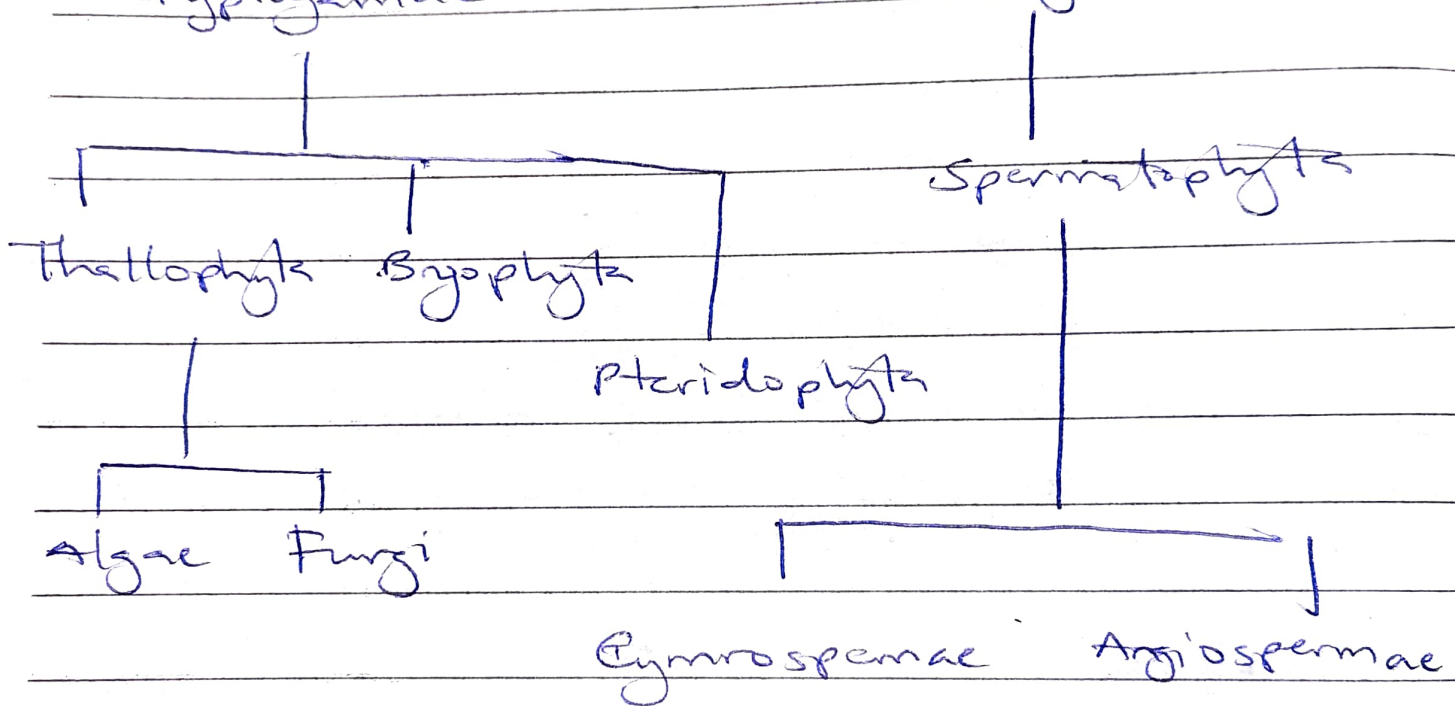 Spermatophyta
Thallophyta Bryophyta
Pteridophyta
Algae Fungi
Gymnospermae Angiospermae